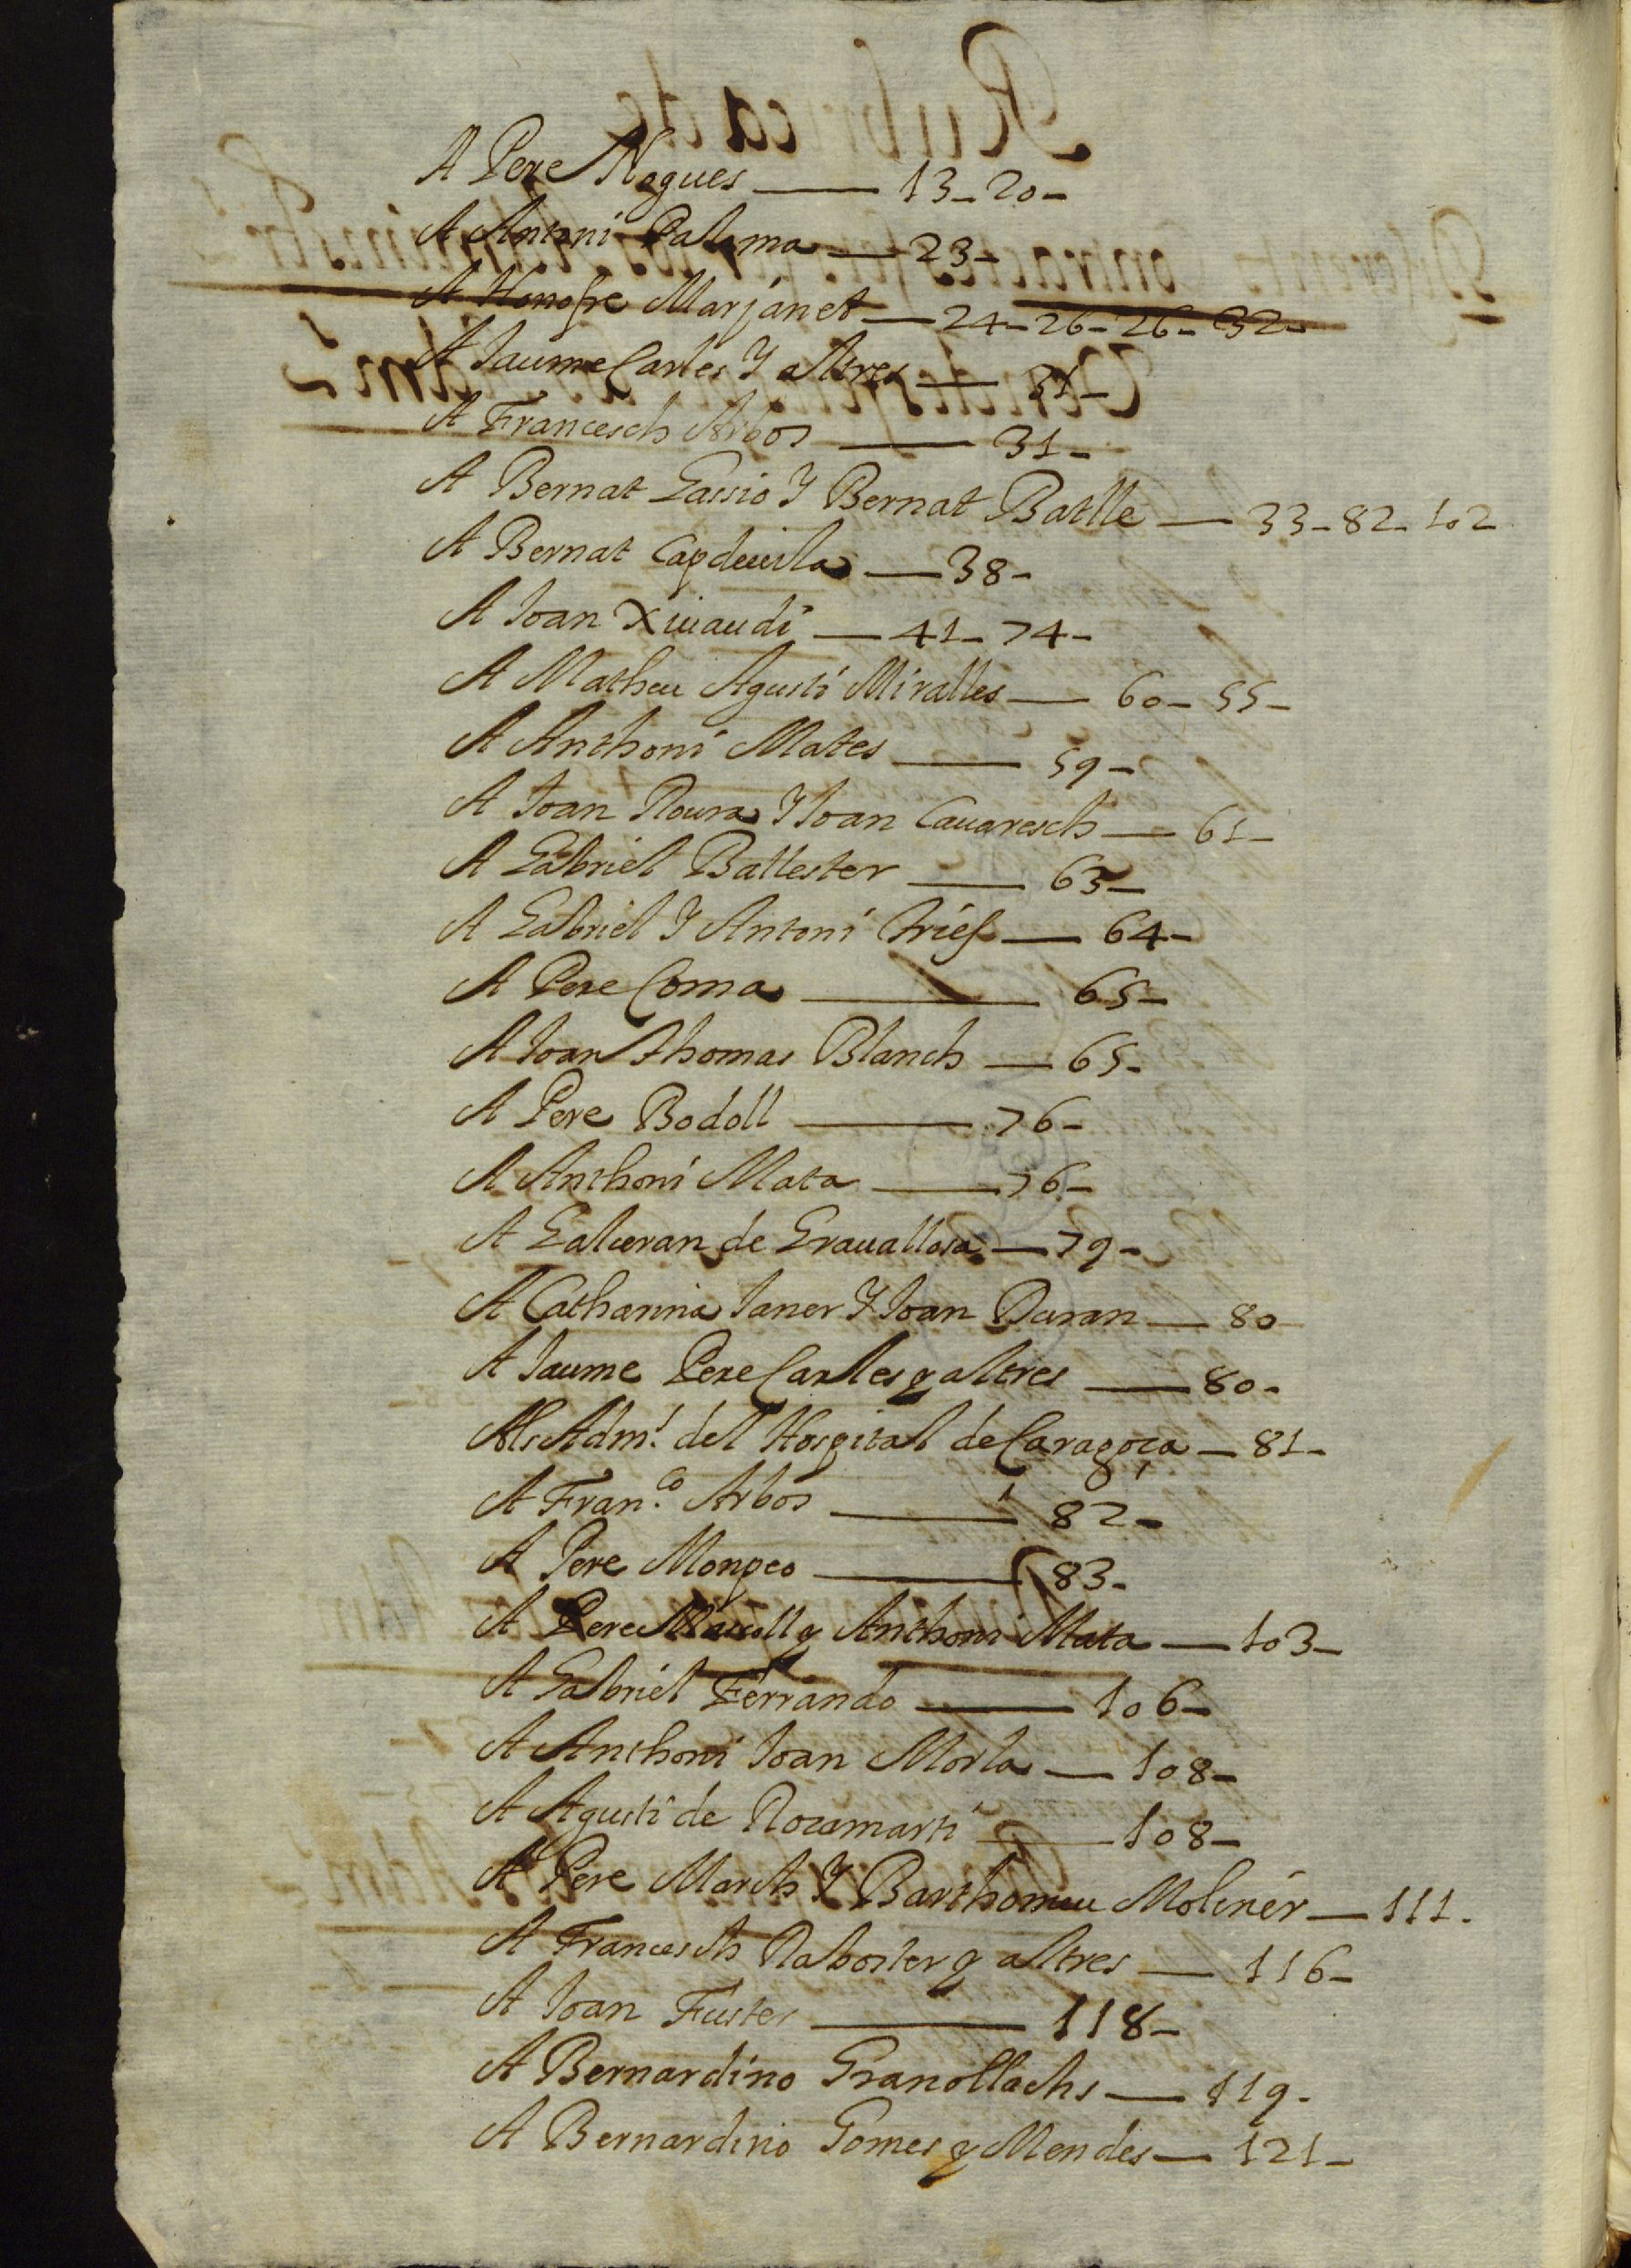 A Pere Nogues — 13 - 20 -
A Antoni Paloma — 23 -
A Honofre Marjanet — 24 - 26 - 26 - 32 -
A Jaume Carles Y altres — 31 -
A Francesch Arbos — 31 -
A Bernat Gassio Y Bernat Batlle — 33 - 82 - 102
A Bernat Capdeuila — 38 -
A Joan Xiuaudi — 41 - 74 -
A Matheu Agusti Miralles — 60 - 55 -
A Anthoni Mates — 59 -
A Joan Roura Y Joan Cauaresch — 61 -
A Gabriel Ballester — 63 -
A Gabriel Y Antoni — 64 -
A Pere Coma — 65 -
A Joan Thomas Blanch — 65 -
A Pere Bodoll — 76 -
A Anthoni Mata — 76 -
A Galceran de Grauallosa — 79 -
A Catharina Janer Y Joan Duran — 80
A Jaume Pere Carles y altres — 80 -
Als Adm.^s del Hospital de Caragoça — 81 -
A Fran.^co Arbos — 82 -
A Pere Monpeo — 83 -
A Pere y Anthoni Mata — 103 -
A Gabriel Ferrando — 106 -
A Anthoni Joan Morla — 108 -
A Agusti de Rocamarti — 108 -
A Pere March Y Barthomeu Moliner — 111 -
A Francesch Raboster y altres — 116 -
A Joan Fuster — 118 -
A Bernardino Granollachs — 119 -
A Bernardino Gomes y Mendes — 121 -